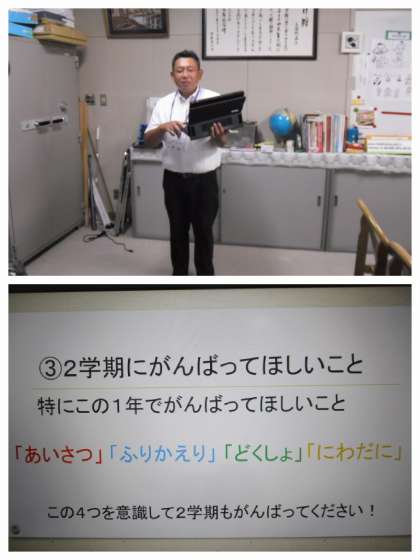 ③2学期にがんばってほしいこと
特にこの1年でがんばってほしいこと
「あいさつ」「ふりかえり」「どくしょ」「にわだに」
この4つを意識して2学期もがんばってください！